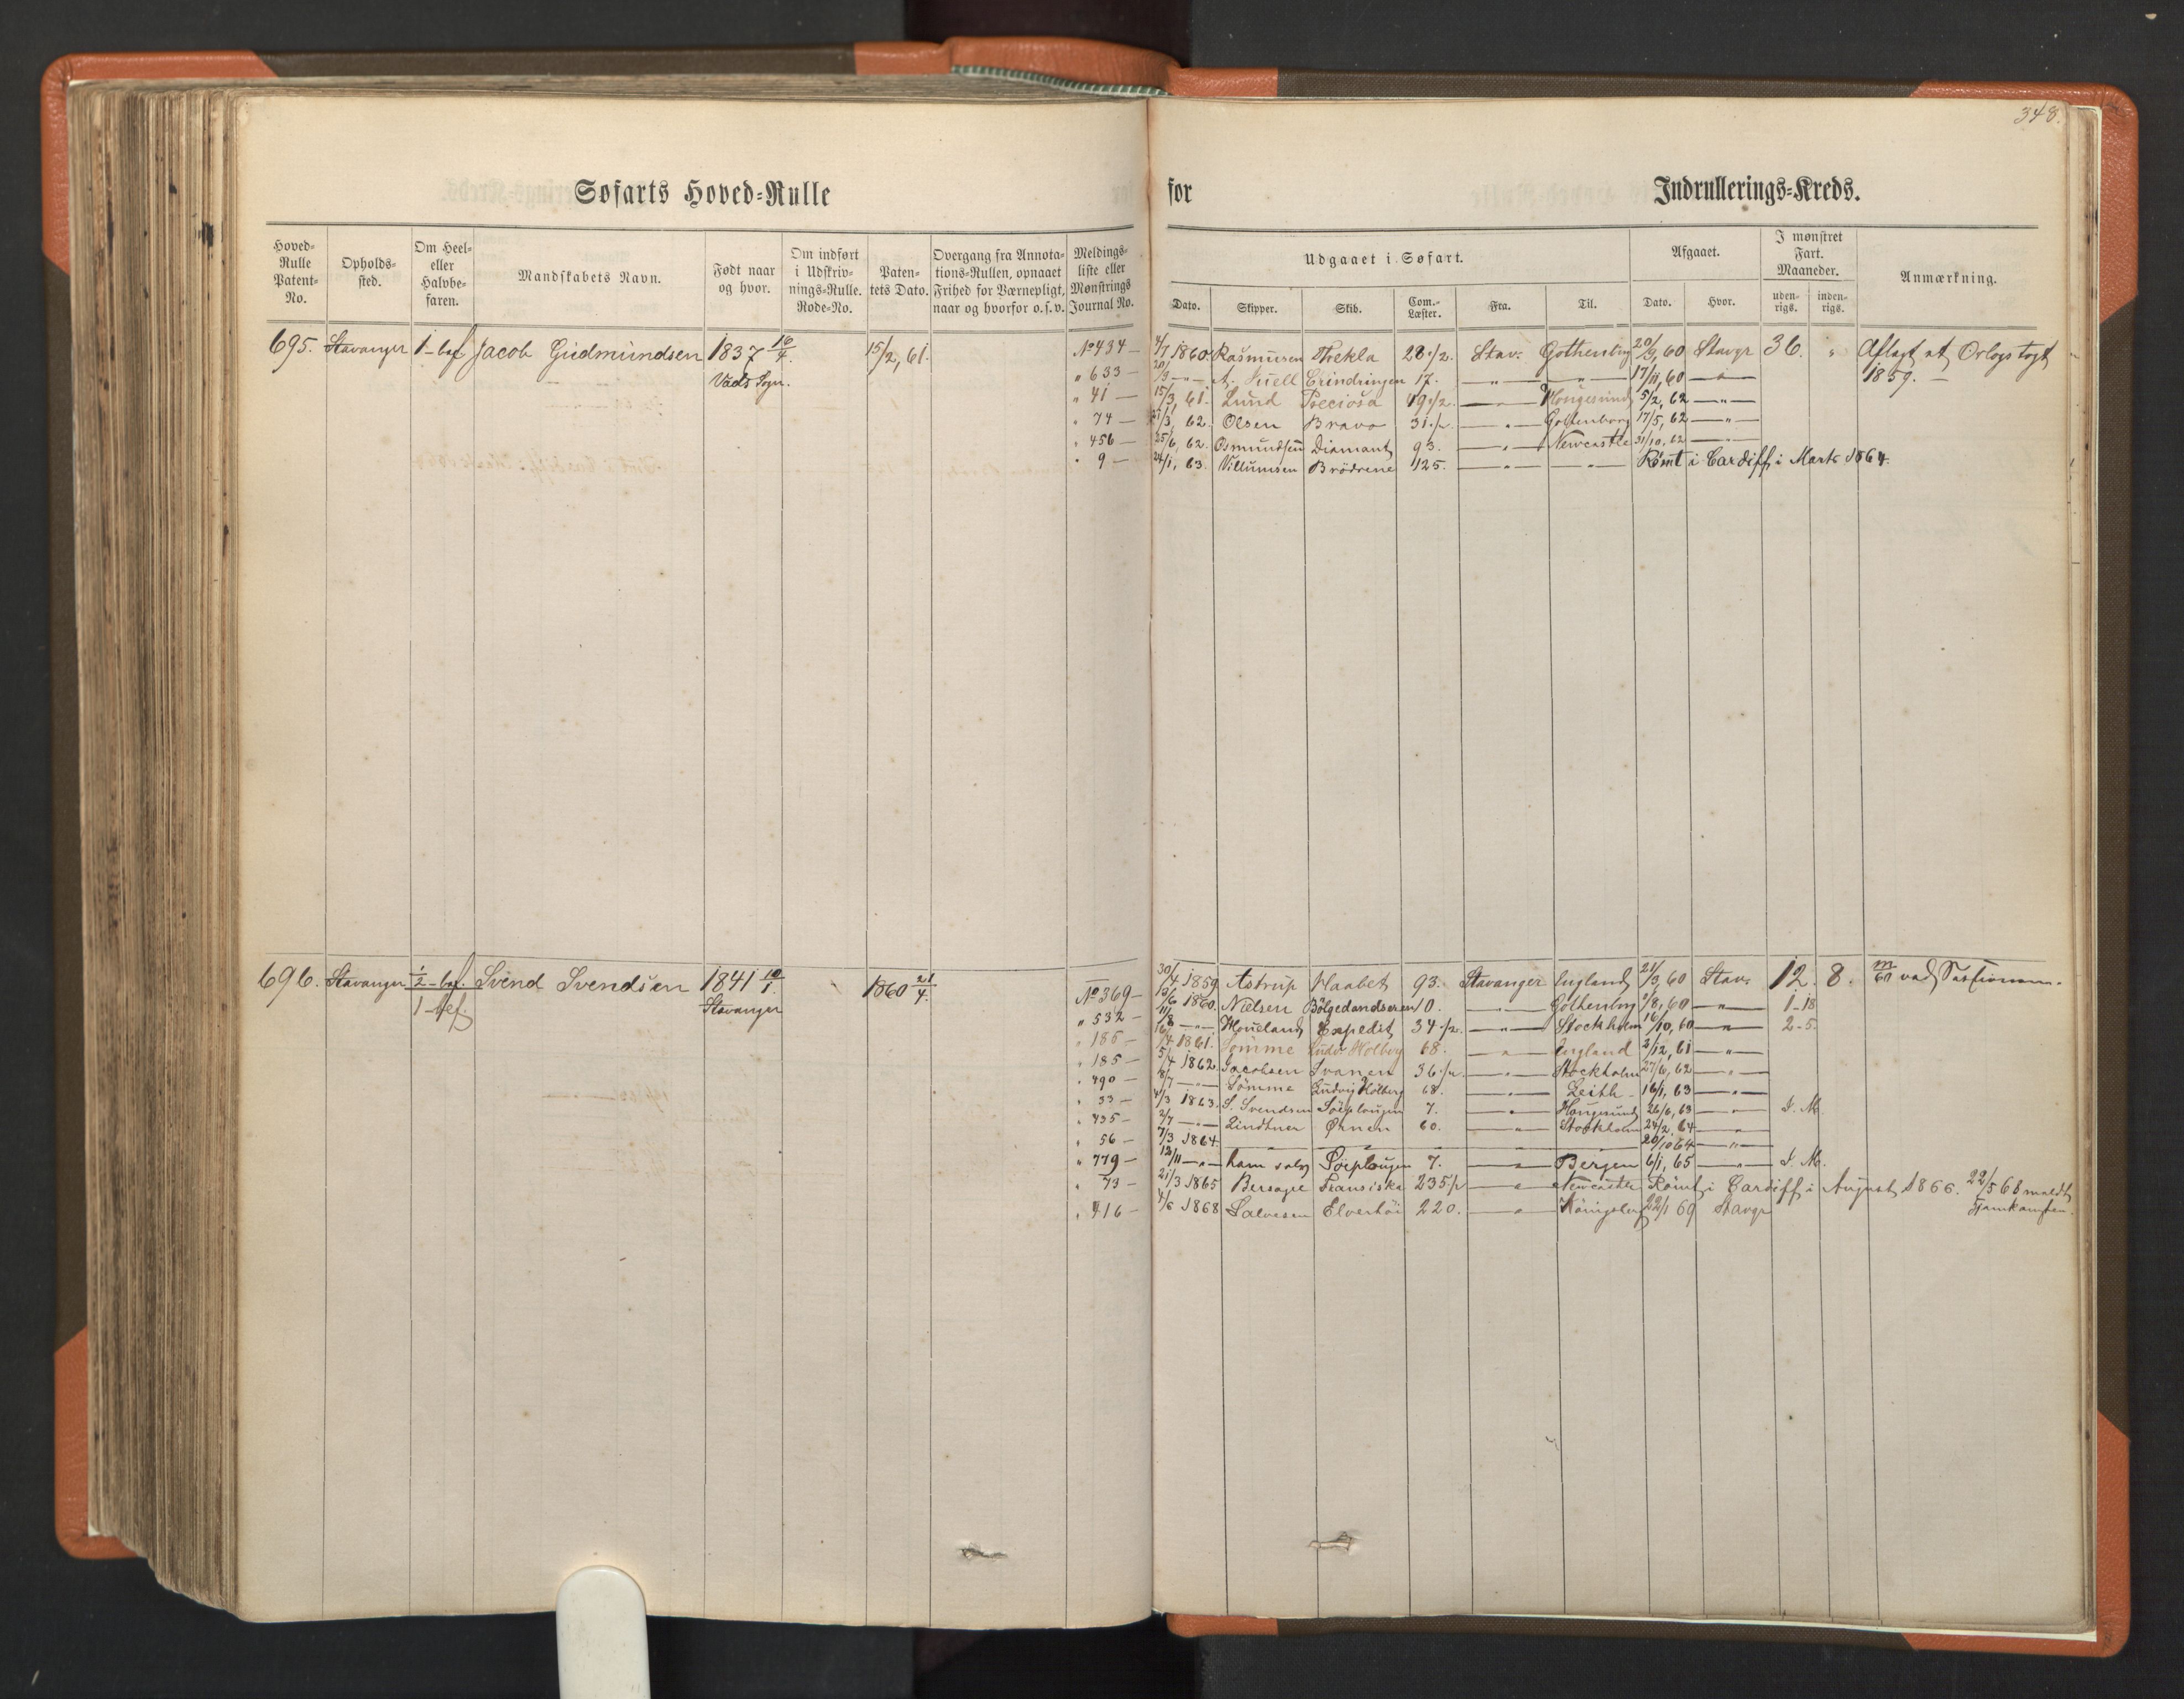 348.
Søfarts Hoved-Rulle for Indrullerings-Kreds.
Hoved-Rulle Patent-No. Opholds-sted. Om Heel- eller Halvbe-faren. Mandskabets Navn. Født naar og hvor. Om indført i Udskriv-nings-Rulle. Rode-No. Paten-tets Dato. Overgang fra Annota-tions-Rullen, opnaaet Frihed for Værnepligt, naar og hvorfor o. s. v. Meldings-liste eller Mønstrings Journal No.
Udgaaet i Søfart. Afgaaet. I mønstret Fart. Maaneder. Anmærkning.
Dato. Skipper. Skib. Com.-Læster. Fra. Til. Dato. Hvor. uden-rigs. inden-rigs.
695. Stavanger 1-bef Jacob Gudmundsen 1837 16/4. 15/2, 61. No 434 — 4/7 1860 Rasmusen Thekla 28 1/2. Stav. Gothenborg 20/9, 60 Stavgr 36. " Aflagt et Orlogs togt
Vads Sogn. " 633 — 20/9 — " — A. Juell Erindringen 17. — " — — " — 17/11, 60 — " — 1859. —
" 41 — 15/3, 61. Lund Preciosa 49 1/2. — " — Hougesund 5/2, 62 — " —
" 74 — 27/3, 62. Olsen Bravo 31 1/2. — " — Gothenborg 17/5, 62 — " —
" 456 — 25/6, 62. Osmundsen Diamant 93. — " — Newcastle 31/10, 62 — " —
" 9 — 24/1, 63. Villumsen Brödrene 125. — " — — " — Römt i Cardiff i Marts 1864.
696. Stavanger 1/2-bef. Svend Svendsen 1841 10/1. 1860 21/4. No 369 — 30/4 1859 Astrup Haabet 93. Stavanger England 21/3, 60 Stav. 12. 8.
1-bef. Stavanger " 532 — 13/6 1860. Nielsen Bölgedandseren 10. — " — Gothenborg 1/8, 60 — " — 1-18
" 186 — 11/8 — " — Houeland Expedit 34 1/2. — " — Stockholm 16/10, 60 — " — 2-5.
" 185 — 16/4 1861. Sömme Ludv. Holberg 68. — " — England 3/12, 61 — " —
" 490 — 5/4 1862. Jacobsen Svanen 36 1/2. — " — Stockholm 27/6, 62 — " —
" 33 — 8/7 — " — Sömme Ludvig Holberg 68. — " — Leith — 16/1, 63 — " —
" 435 — 4/3 1863. S. Svendsen Söeplougen 7. — " — Hougesund 26/6, 63 — " — I. M.
" 56 — 2/7 — " — Lindtner Ørnen 60. — " — Stockholm 24/2, 64 — " —
" 779 — 7/3 1864. — " — — " — — " — 20/10 64 — " —
" 73 — 12/11 — " — ham selv Söeplougen 7. — " — Bergen 6/1, 65 — " — I. M.
" 416 — 21/3 1865 Bersagel Fransiska 235 1/2 — " — Newcastle Römt i Cardiff i August 1866. 22/5 68 meldt
4/6 1868 Salvesen Elverhöi 220. — " — Königsberg 22/1 69 Stavgr